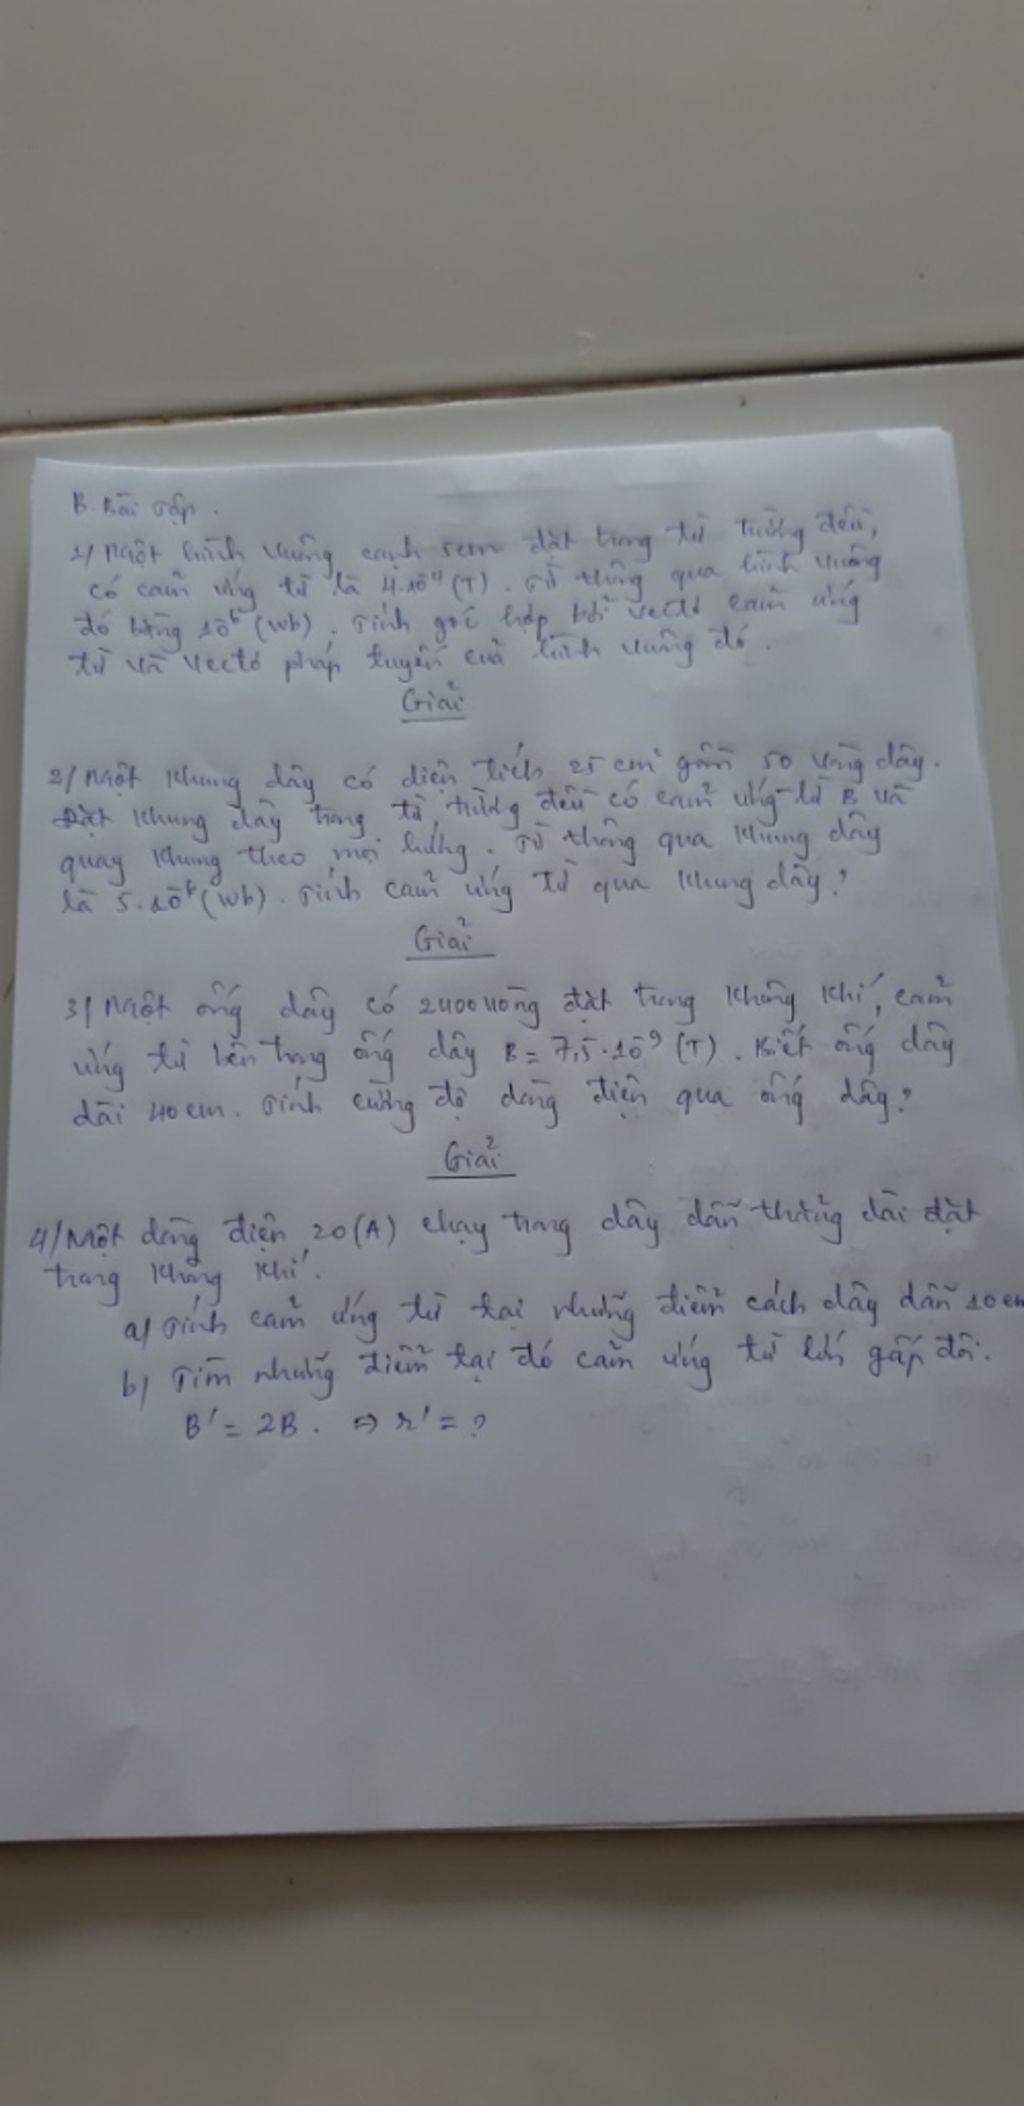 B. Bài tập.
1/ Một hình vuông cạnh 5cm đặt trong từ trường đều,
có cảm ứng từ là 4.10⁻⁴ (T). Từ thông qua hình vuông
đó bằng 10⁻⁶ (Wb). Tính góc hợp bởi vectơ cảm ứng
từ và vectơ pháp tuyến của hình vuông đó.
Giải
2/ Một khung dây có diện tích 25 cm² gồm 50 vòng dây.
Đặt khung dây trong từ trường đều có cảm ứng từ B và
quay khung theo mọi hướng. Từ thông qua khung dây
là 5.10⁻⁶ (Wb). Tính cảm ứng từ qua khung dây?
Giải
3/ Một ống dây có 2400 vòng đặt trong không khí, cảm
ứng từ bên trong ống dây B = 7,5.10⁻⁹ (T). Biết ống dây
dài 40 cm. Tính cường độ dòng điện qua ống dây?
Giải
4/ Một dòng điện 20(A) chạy trong dây dẫn thẳng dài đặt
trong không khí.
a/ Tính cảm ứng từ tại những điểm cách dây dẫn 10 cm
b/ Tìm những điểm tại đó cảm ứng từ lớn gấp đôi.
B' = 2B. ⇒ r' = ?